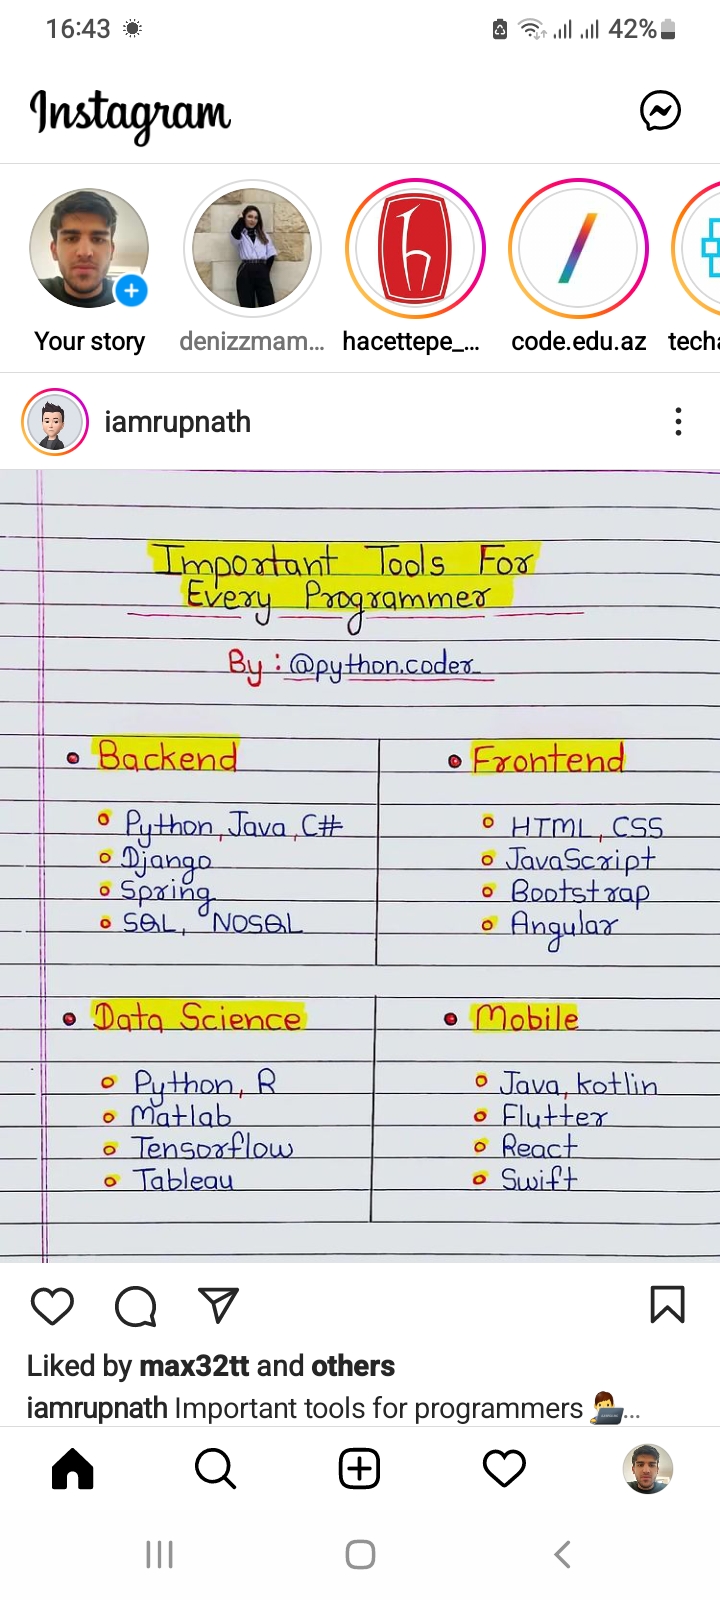 16:43 42%
Instagram
Your story denizzmam... hacettepe_... code.edu.az techa
iamrupnath
Important Tools For
Every Programmer
By : @python.coder
Backend
Python, Java, C#
Django
Spring
SQL, NOSQL
Frontend
HTML, CSS
JavaScript
Bootstrap
Angular
Data Science
Python, R
Matlab
Tensorflow
Tableau
Mobile
Java, kotlin
Flutter
React
Swift
Liked by max32tt and others
iamrupnath Important tools for programmers 👨‍💻...